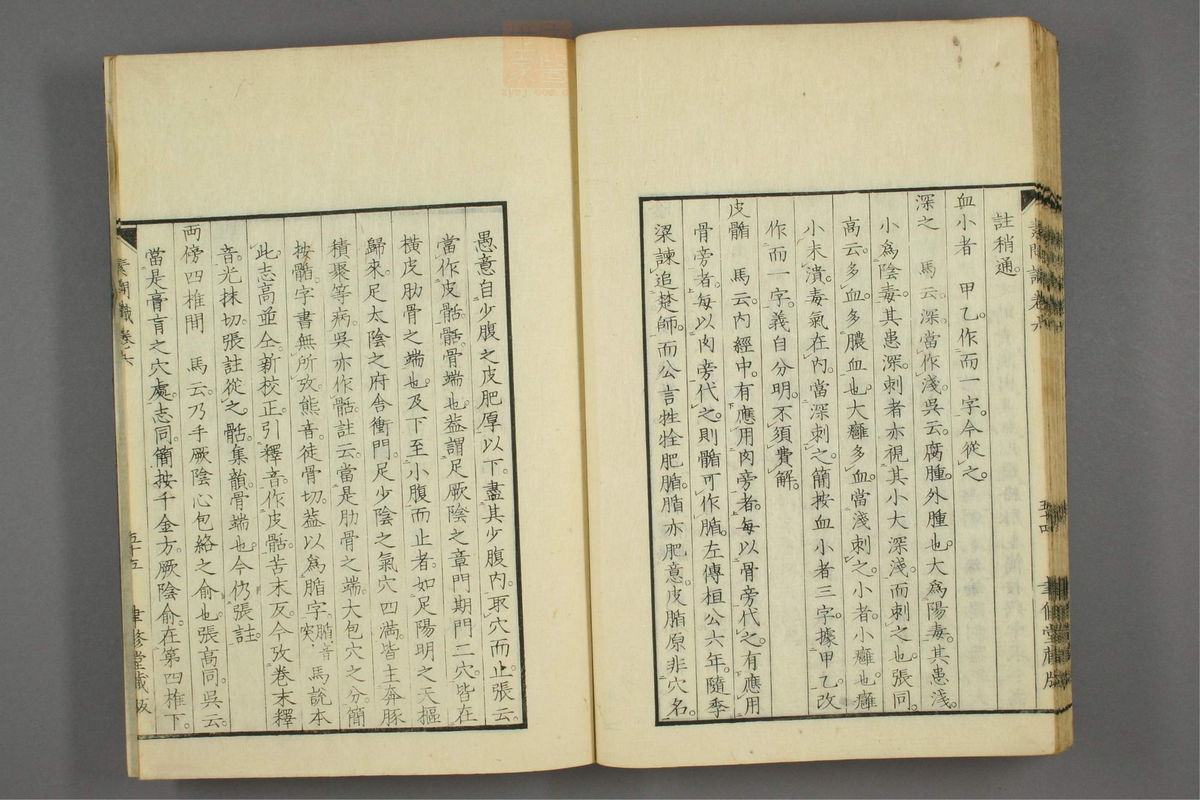 註稍通。
血小者　甲乙作而一字。今從之。
深之　馬云。深當作淺。吳云。腐腫。外腫也。大爲陽毒。其患淺。
小爲陰毒。其患深。刺者亦視其小大深淺而刺之也。張同。
高云。多血。多膿血也。大癰多血。當淺刺之。小者。小癰也。癰
小未潰。毒氣在內。當深刺之。簡按血小者三字。據甲乙改
作而一字。義自分明。不須費解。
皮䯏　馬云。內經中。有應用肉旁者。每以骨旁代之。有應用
骨旁者。每以肉旁代之。則䯏可作腯。左傳桓公六年。隨季
梁諫追楚師。而公言牲牷肥腯。腯亦肥意。皮腯原非穴名。
愚意自少腹之皮肥厚以下。盡其少腹內。取穴而止。張云。
當作皮䯊。䯊。骨端也。蓋謂足厥陰之章門期門二穴。皆在
橫皮肋骨之端也。及下至小腹而止者。如足陽明之天樞
歸來。足太陰之府舍衝門。足少陰之氣穴四滿。皆主奔豚
積聚等病。吳亦作䯊。註云。當是肋骨之端。大包穴之分。簡
按䯏。字書無所攷。熊音徒骨切。蓋以爲腯字。腯音突。馬說本
此。志高並仝。新校正。引釋音。作皮䯊。苦末反。今攷卷末釋
音。光抹切。張註從之。䯊。集韻骨端也。今仍張註。
兩傍四椎間　馬云。乃手厥陰心包絡之俞也。張高同。吳云。
當是膏肓之穴處。志同。簡按千金方。厥陰俞。在第四椎下。
素問識卷六
五十四
聿修堂藏版
素問識卷六
五十五
聿修堂藏版